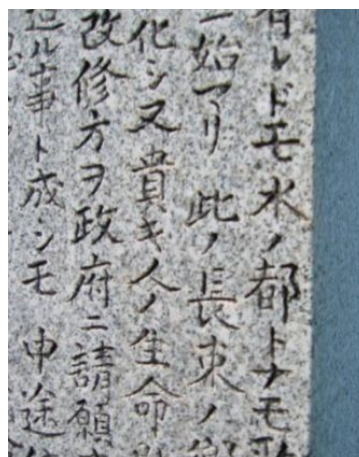 有レドモ水ノ都トナモ
ニ始マリ此ノ長束ノ
化シ又貴キ人ノ生命
改修方ヲ政府ニ請願
ル事ト成シモ中途